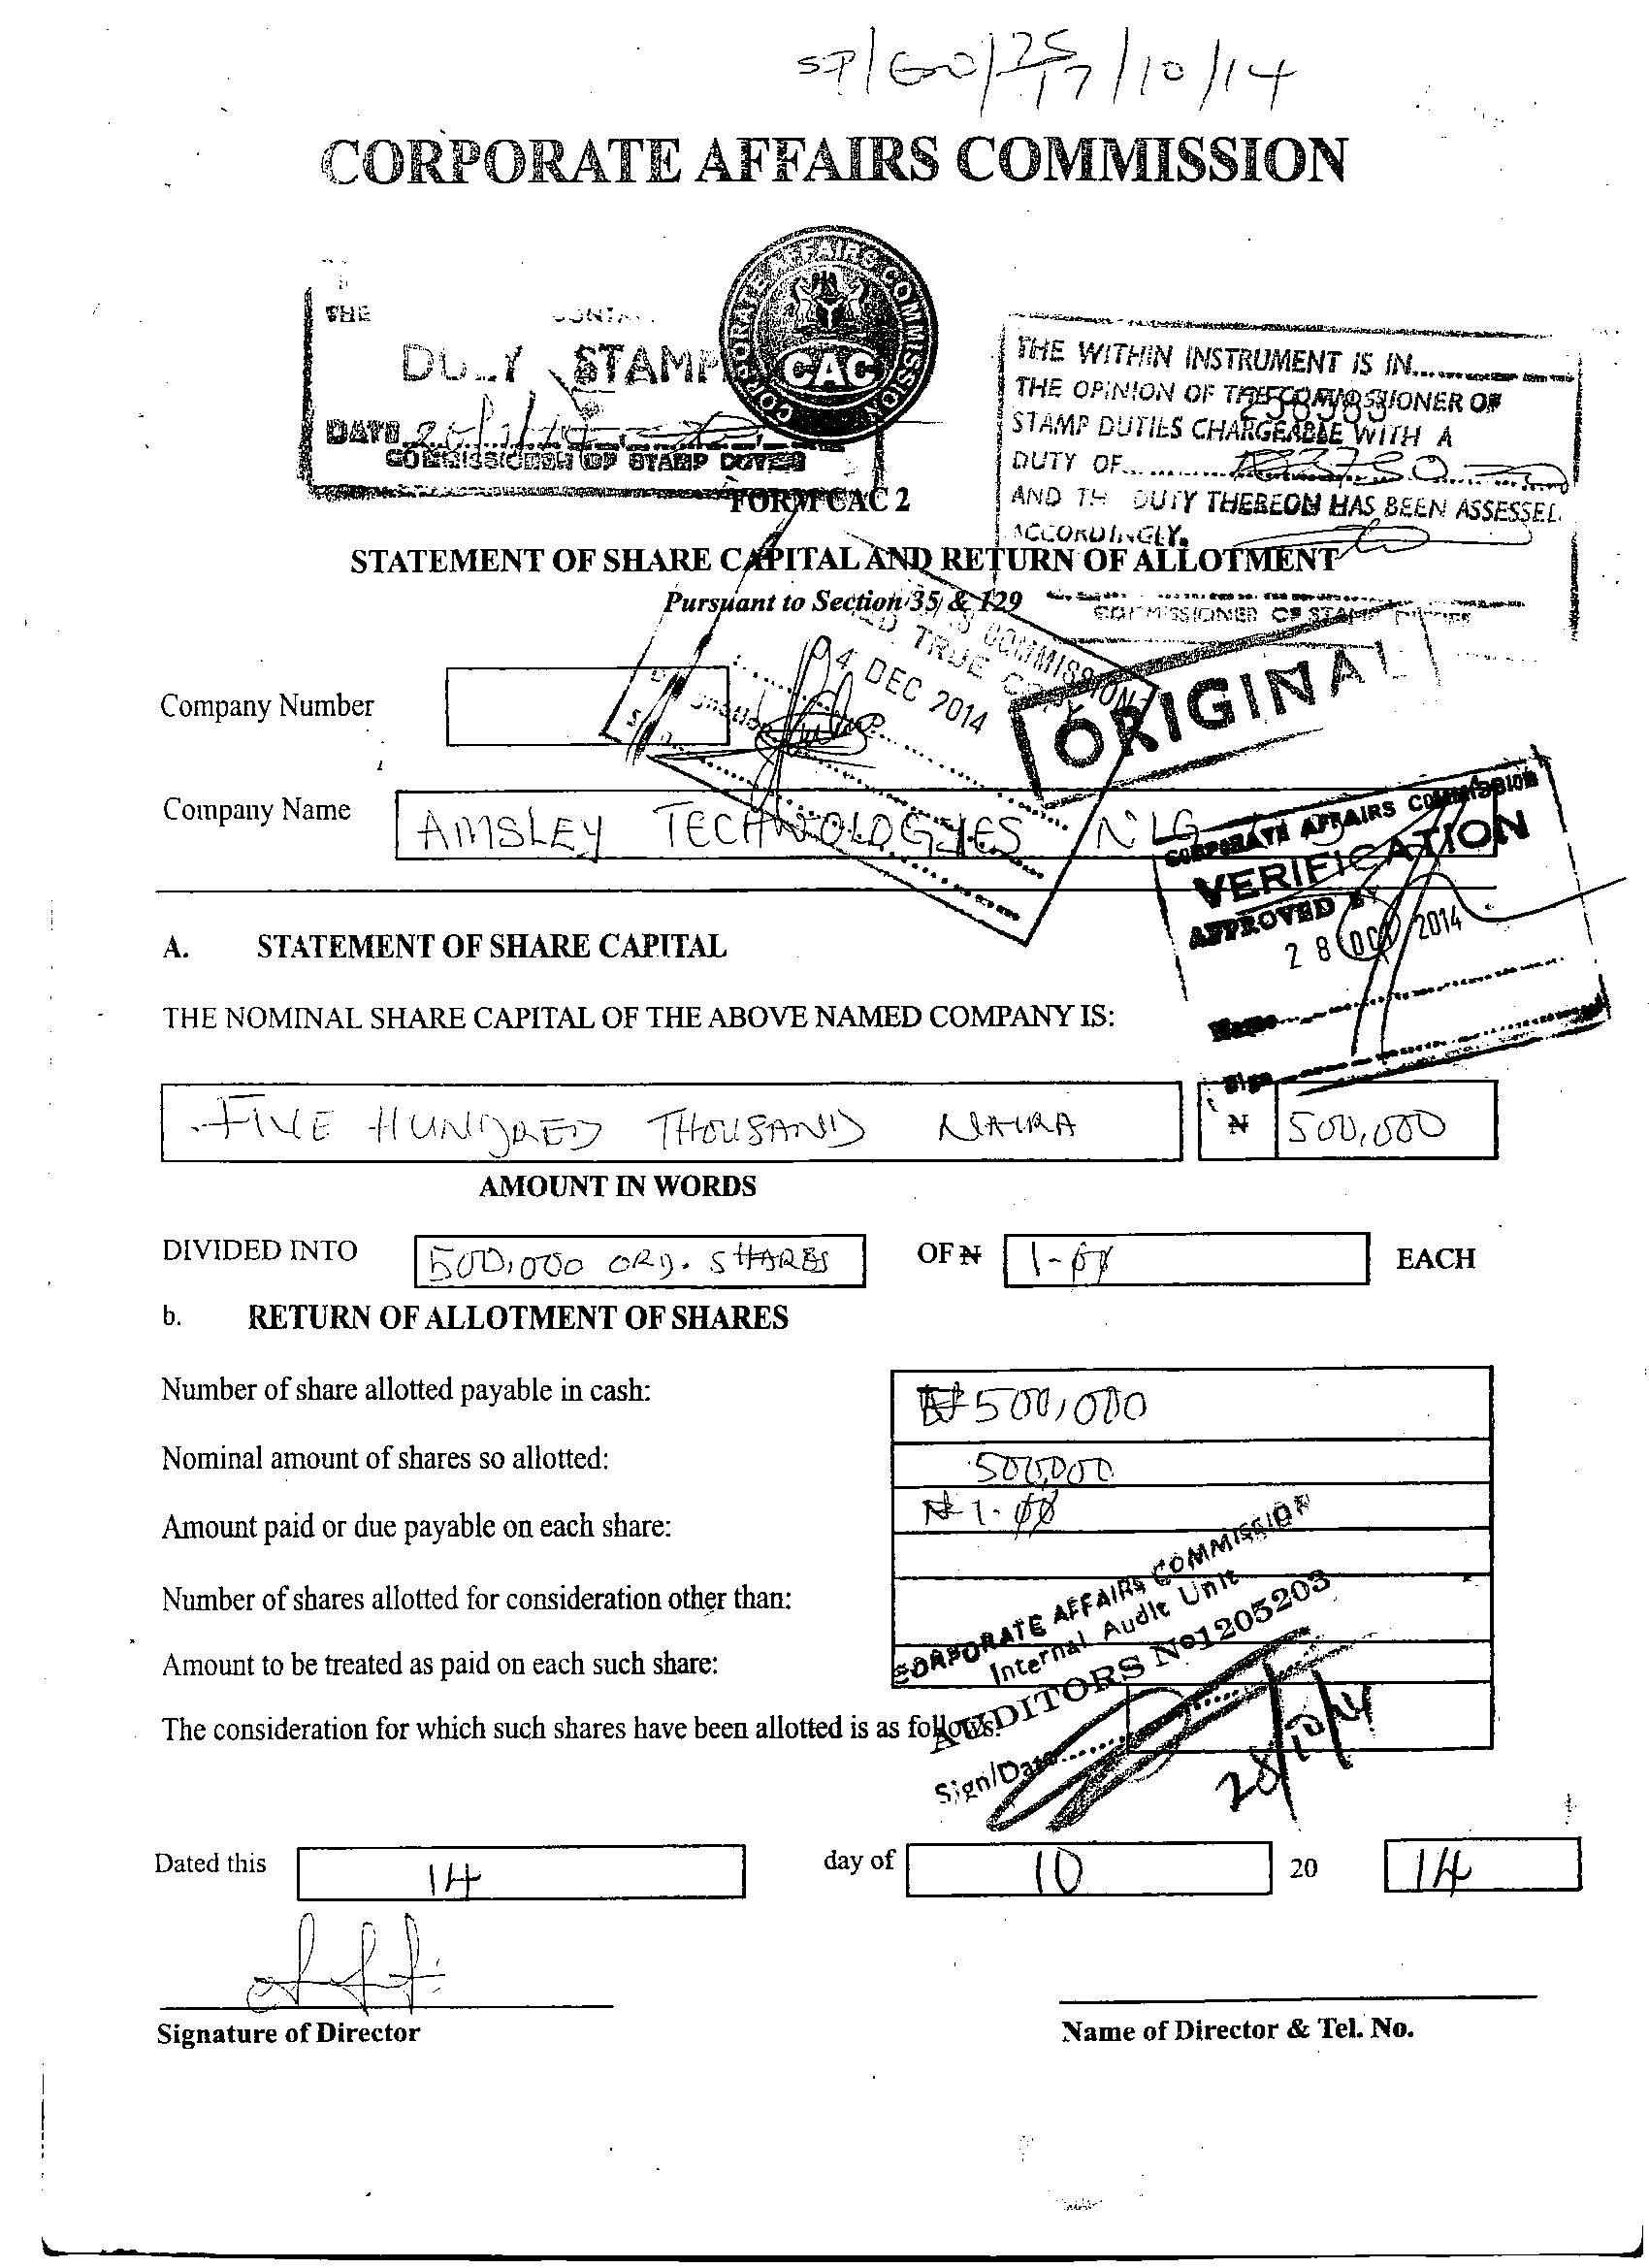 CORPORATE AFFAIRS COMMISSION
CORPORATE AFFAIRS COMMISSION
CAC
THE
DULY STAMP
DATE
COMMISSIONER OF STAMP DUTIES
THE WITHIN INSTRUMENT IS IN
THE OPINION OF THE COMMISSIONER OF
STAMP DUTIES CHARGEABLE WITH A
DUTY OF
AND THE DUTY THEREON HAS BEEN ASSESSED
ACCORDINGLY.
COMMISSIONER OF STAMP DUTIES
FORM CAC 2
STATEMENT OF SHARE CAPITAL AND RETURN OF ALLOTMENT
Pursuant to Section 35 & 129
COMMISSION
TRUE
04 DEC 2014
ORIGINAL
Company Number
Company Name
AMSLEY TECHNOLOGIES NIG
CORPORATE AFFAIRS COMMISSION
VERIFICATION
APPROVED BY
28 OCT 2014
Name
Sign
A. STATEMENT OF SHARE CAPITAL
THE NOMINAL SHARE CAPITAL OF THE ABOVE NAMED COMPANY IS:
FIVE HUNDRED THOUSAND NAIRA ₦ 500,000
AMOUNT IN WORDS
DIVIDED INTO 500,000 ORD. SHARES OF ₦ 1-00 EACH
b. RETURN OF ALLOTMENT OF SHARES
Number of share allotted payable in cash: ₦500,000
Nominal amount of shares so allotted: 500,000
Amount paid or due payable on each share: ₦1.00
Number of shares allotted for consideration other than:
Amount to be treated as paid on each such share:
The consideration for which such shares have been allotted is as follows:
CORPORATE AFFAIRS COMMISSION
Internal Audit Unit
AUDITORS No1205203
Sign/Date 28/10/14
Dated this 14 day of 10 20 14
Signature of Director Name of Director & Tel. No.